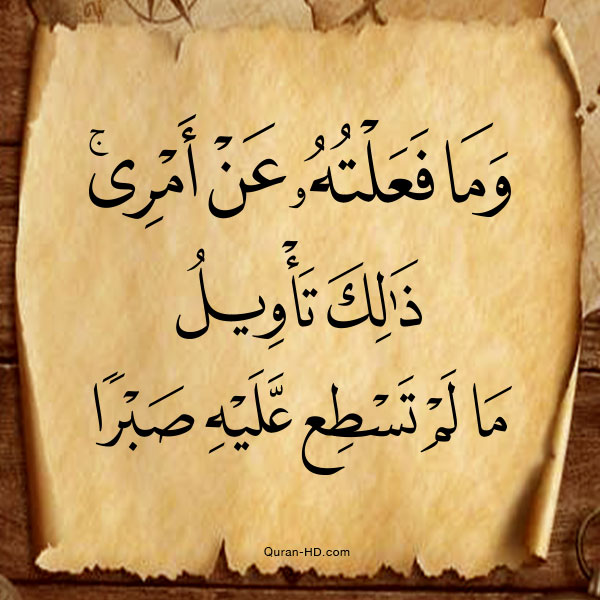 وَمَا فَعَلْتُهُۥ عَنْ أَمْرِىۚ
ذَٰلِكَ تَأْوِيلُ
مَا لَمْ تَسْطِع عَّلَيْهِ صَبْرًا
Quran-HD.com